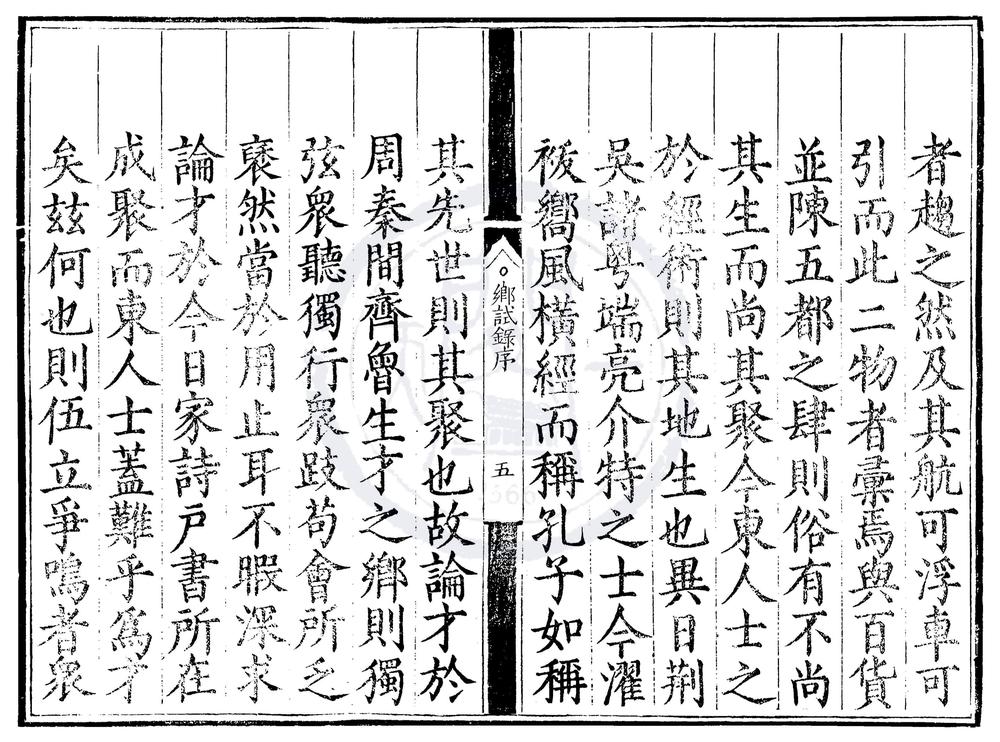 者趨之然及其航可浮車可
引而此二物者彙焉與百貨
並陳五都之肆則俗有不尚
其生而尚其聚今東人士之
於經術則其地生也異日荆
吳諸粤端亮介特之士今濯
祓嚮風橫經而稱孔子如稱
鄉試錄序
五
其先世則其聚也故論才於
周秦間齊魯生才之鄉則獨
弦衆聽獨行衆跂茍會所乏
褎然當於用止耳不暇深求
論才於今日家詩戶書所在
成聚而東人士蓋難乎爲才
矣玆何也則伍立爭鳴者衆